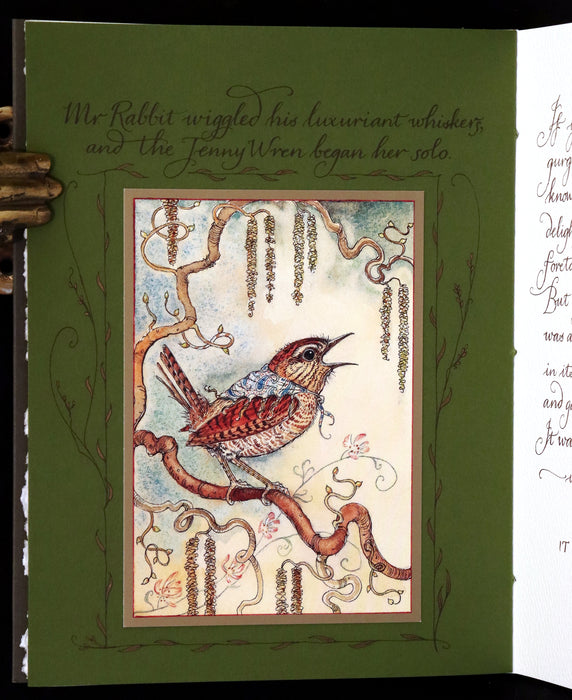 Mr Rabbit wiggled his luxuriant whiskers,
and the Jenny Wren began her solo.
If
know
But
was a
in it
and g
It wa
IT